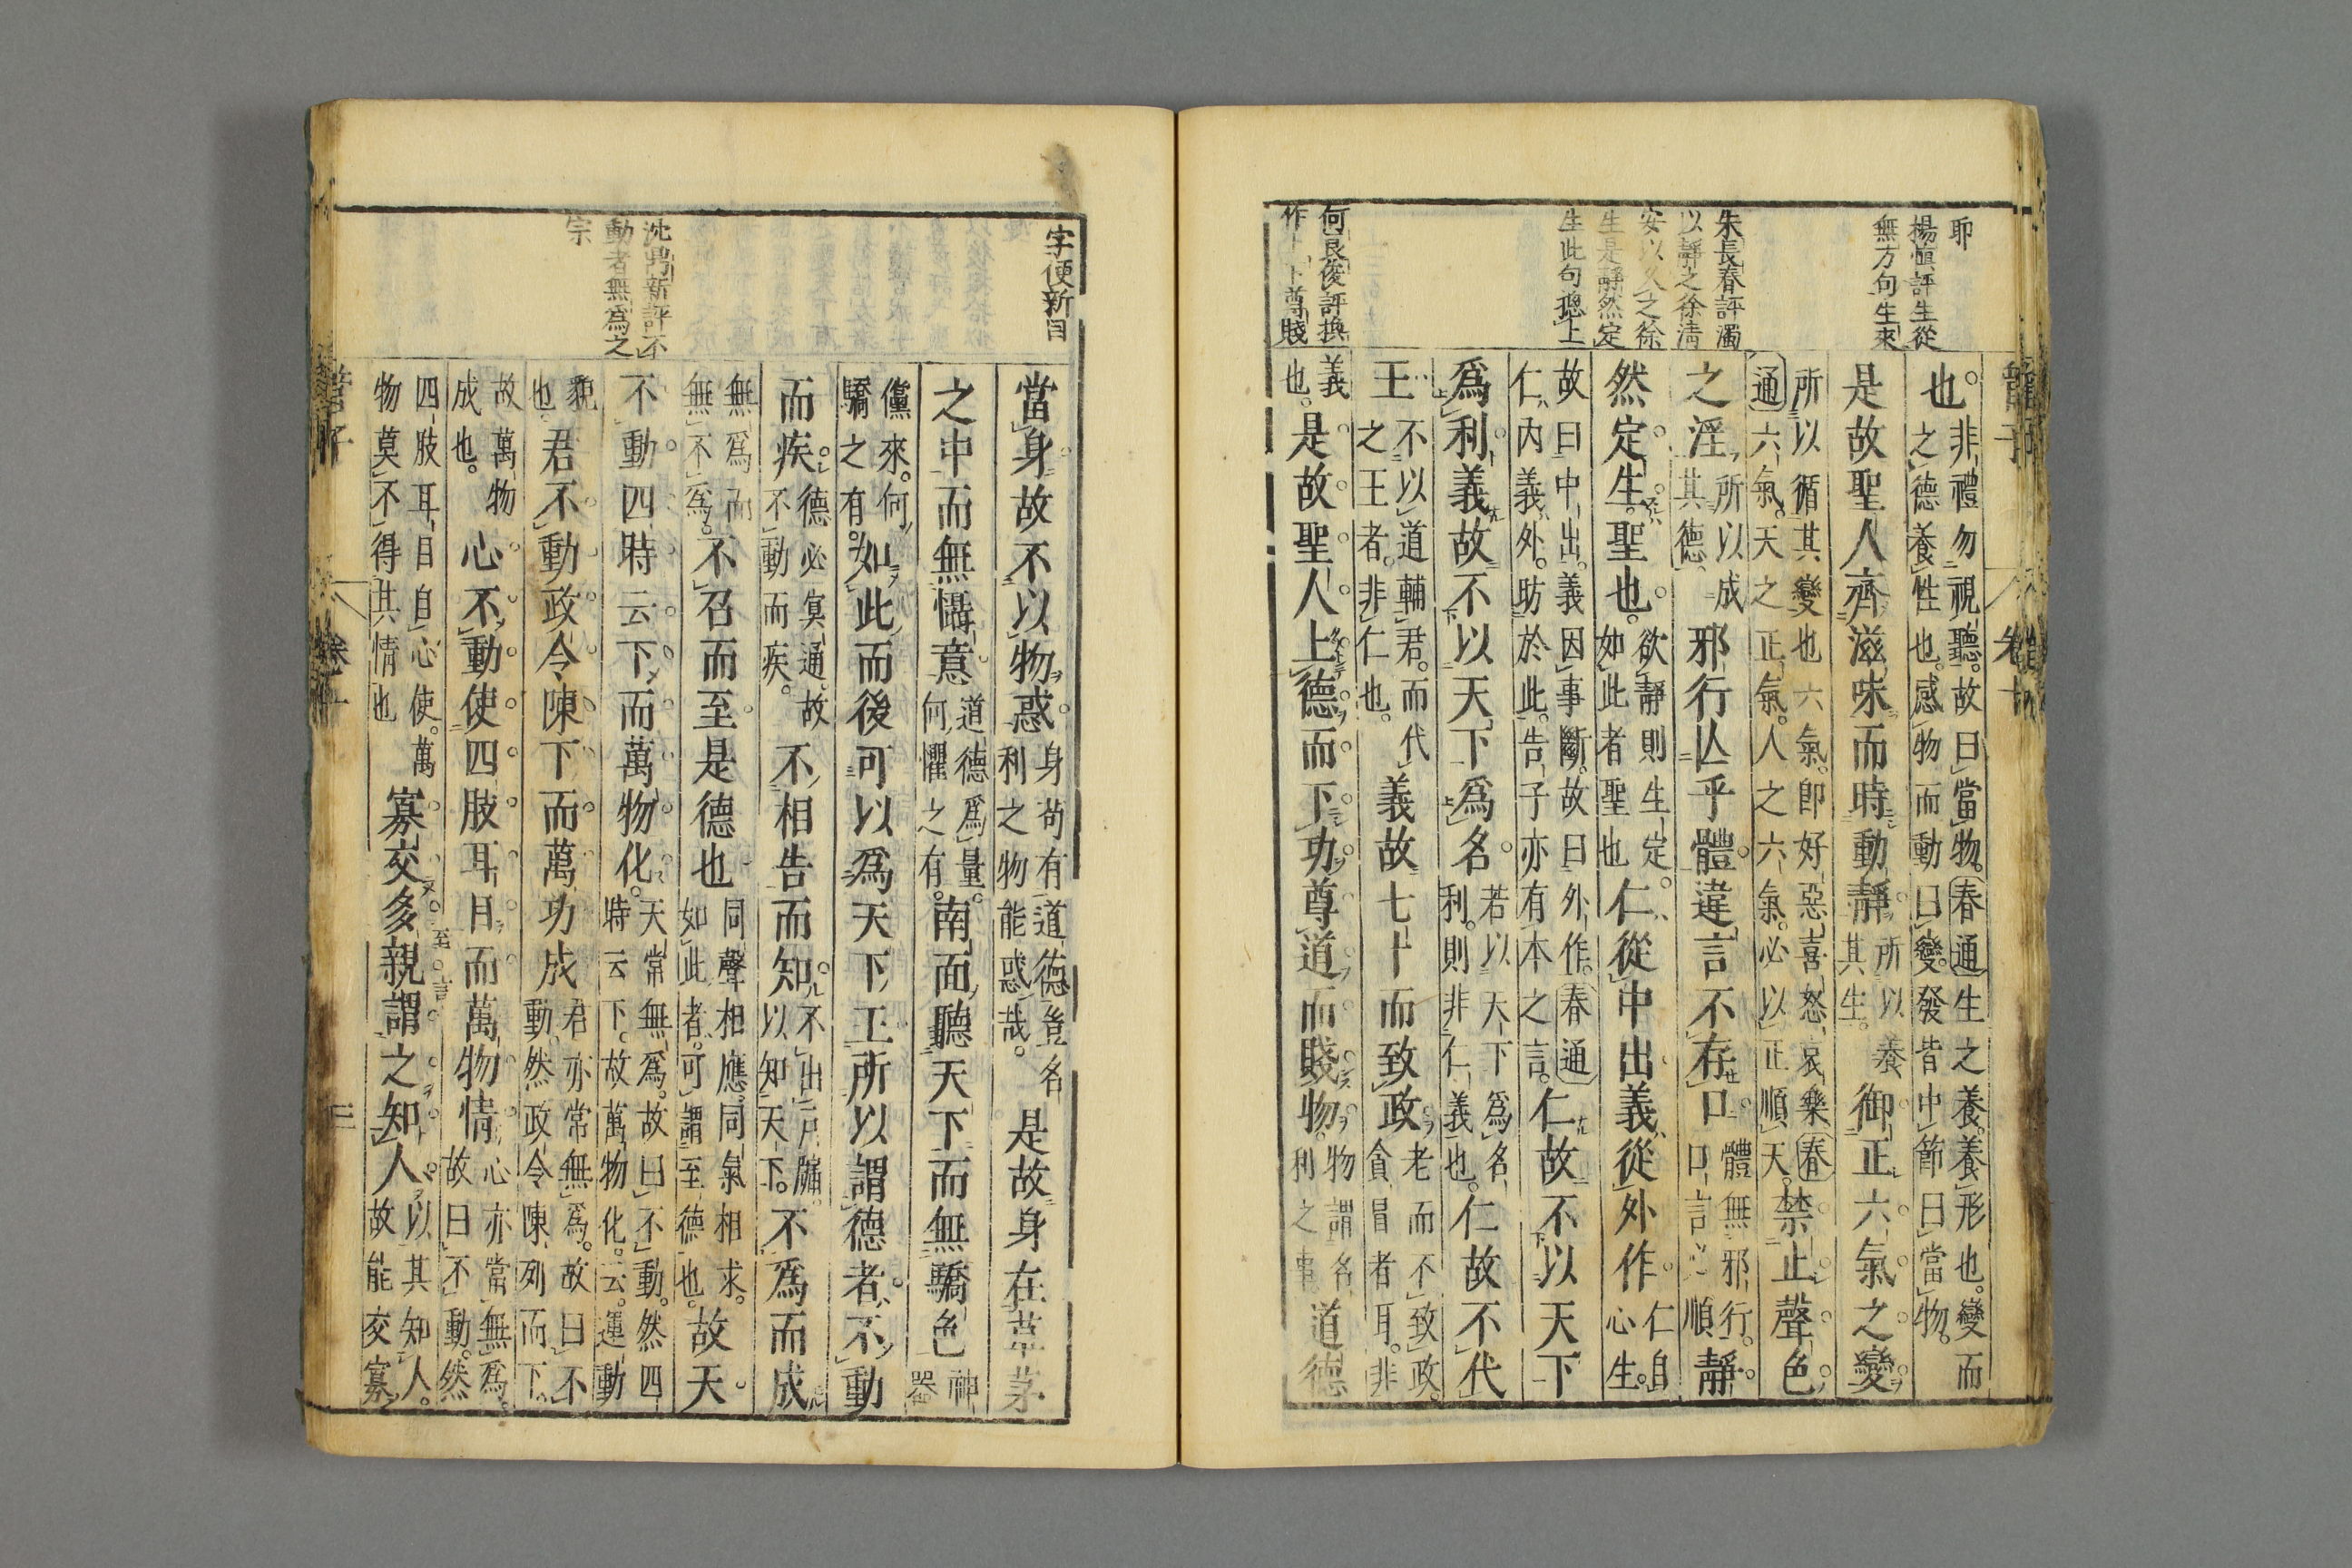 耶
楊慎評生從
無方句生來
朱長春評濁
以靜之徐清
安以久之徐
生是靜然定
生此句總上
何良俊評換
作上下尊賤
也非禮勿視聽故曰當物春通生之養養形也變而
之德養性也感物而動曰變發皆中節曰當物
是故聖人齊滋味而時動靜所以養其生御正六氣之變
所以循其變也六氣即好惡喜怒哀樂春
通六氣天之正氣人之六氣必以正順天禁止聲色
之淫所以成其德邪行亾乎體違言不存口體無邪行口言必順靜
然定生聖也欲靜則生定如此者聖也仁從中出義從外作仁自心生
故曰中出義因事斷故曰外作春通
仁內義外昉於此告子亦有本之言仁故不以天下
爲利義故不以天下爲名若以天下爲名利則非仁義也仁故不代
王不以道輔君而代之王者非仁也義故七十而致政老而不致政貪冒者耳非
義也是故聖人上德而下功尊道而賤物物謂名利之事道德
字便新目
沈鼎新評不
動者無爲之
宗
當身故不以物惑身苟有道德豈名利之物能惑哉是故身在草茅
之中而無懾意道德爲量何懼之有南面聽天下而無驕色神器
儻來何驕之有如此而後可以爲天下王所以謂德者不動
而疾德必冥通故不動而疾不相告而知不出戶牖以知天下不爲而成
無爲而無不爲不召而至是德也同聲相應同氣相求如此者可謂至德也故天
不動四時云下而萬物化天常無爲故曰不動然四時云下故萬物化云運動
貌也君不動政令陳下而萬功成君亦常無爲故曰不動然政令陳列而下
故萬物成也心不動使四肢耳目而萬物情心亦常無爲故曰不動然
四肢耳目自心使萬物莫不得其情也寡交多親謂之知人以其知人故能交寡